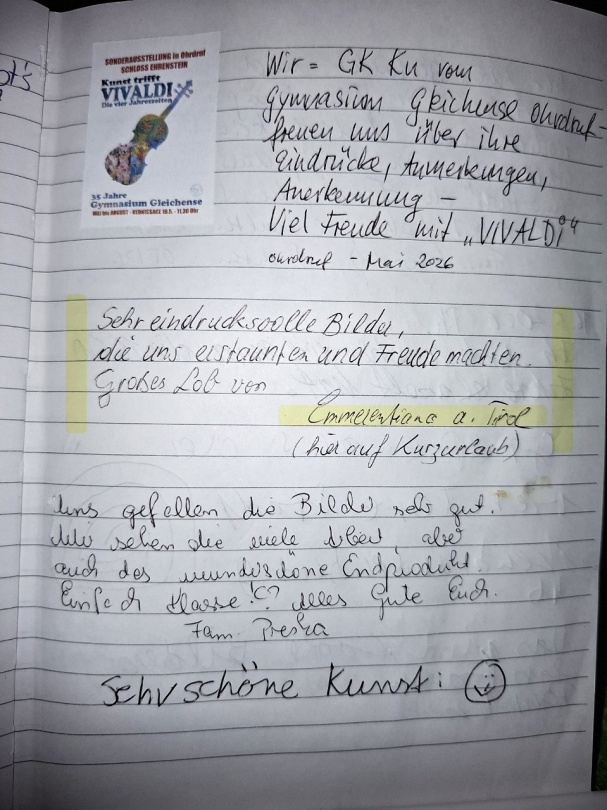 SONDERAUSSTELLUNG in Ohrdruf
SCHLOSS EHRENSTEIN
Kunst trifft
VIVALDI
Die vier Jahreszeiten
35 Jahre
Gymnasium Gleichense
MAI bis AUGUST - VERNISSAGE 18.5. - 11.30 Uhr
Wir = GK Ku vom
Gymnasium Gleichense Ohrdruf -
freuen uns über ihre
Eindrücke, Anmerkungen,
Anerkennung -
Viel Freude mit „VIVALDI“
Ohrdruf - Mai 2026
Sehr eindrucksvolle Bilder,
die uns erstaunten und Freude machten.
Großes Lob von
Emmerentiana a. Tirol
(hier auf Kurzurlaub)
Uns gefallen die Bilder sehr gut.
Wir sehen die viele Arbeit, aber
auch das wunderschöne Endprodukt.
Einfach Klasse! Alles Gute Euch.
Fam.
Sehr schöne Kunst!